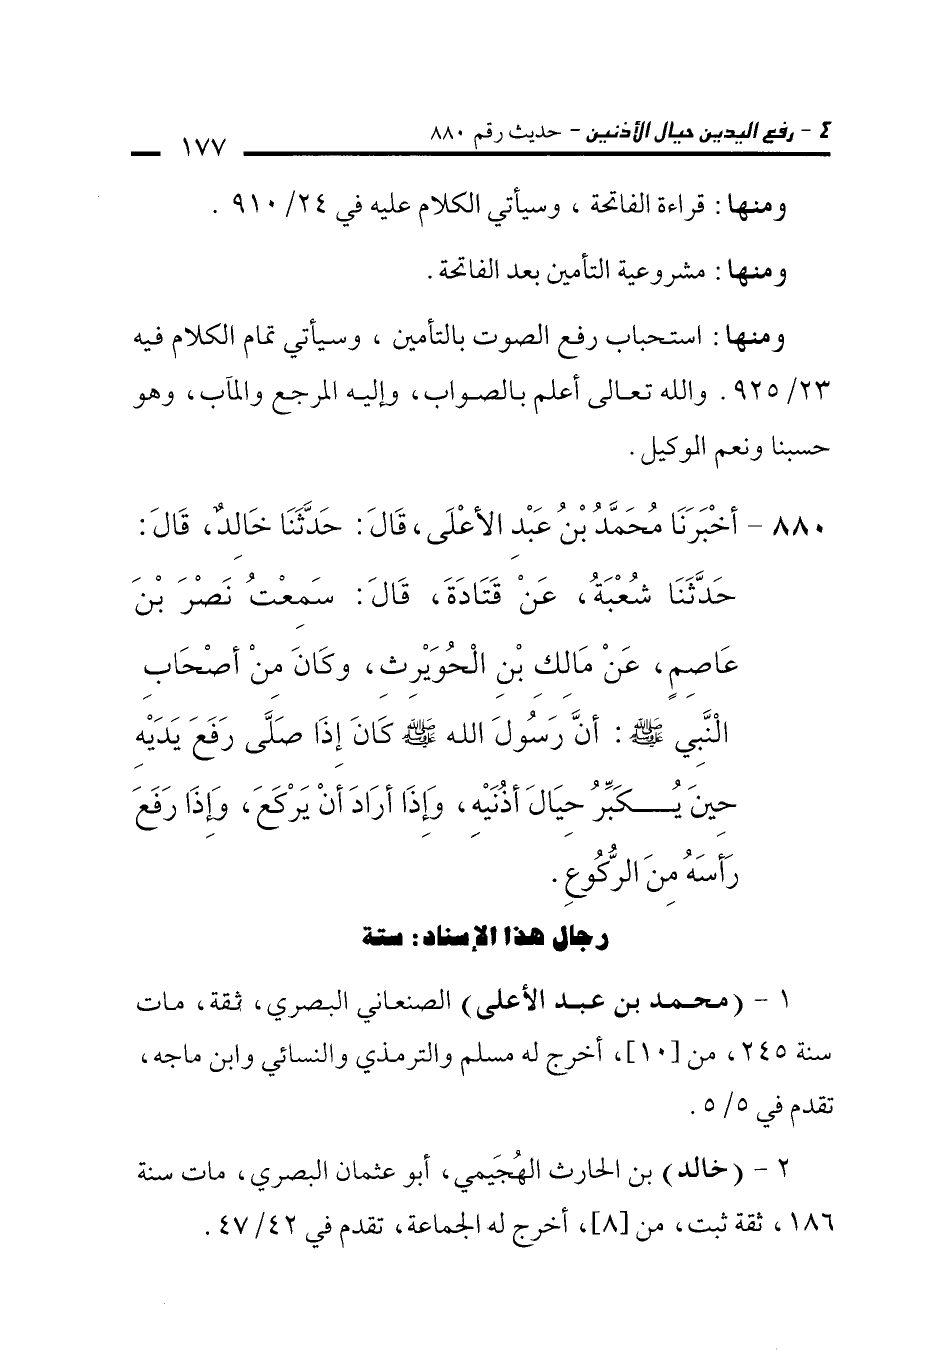 ٤ - رفع اليدين حيال الأذنين - حديث رقم ٨٨٠
١٧٧
ومنها : قراءة الفاتحة ، وسيأتي الكلام عليه في ٢٤/ ٩١٠ .
ومنها : مشروعية التأمين بعد الفاتحة .
ومنها : استحباب رفع الصوت بالتأمين ، وسيأتي تمام الكلام فيه
٢٣/ ٩٢٥ . والله تعالى أعلم بالصواب، وإليه المرجع والمآب، وهو
حسبنا ونعم الوكيل .
٨٨٠ - أَخْبَرَنَا مُحَمَّدُ بْنُ عَبْدِ الأَعْلَى، قَالَ: حَدَّثَنَا خَالِدٌ، قَالَ:
حَدَّثَنَا شُعْبَةُ، عَنْ قَتَادَةَ، قَالَ: سَمِعْتُ نَصْرَ بْنَ
عَاصِمٍ، عَنْ مَالِكِ بْنِ الْحُوَيْرِثِ، وكَانَ مِنْ أَصْحَابِ
النَّبِي ﷺ : أنَّ رَسُولَ اللهِ ﷺ كَانَ إذَا صَلَّى رَفَعَ يَدَيْهِ
حِينَ يُــكَبِّرُ حِيَالَ أُذُنَيْهِ، وَإذَا أرَادَ أنْ يَرْكَعَ، وَإذَا رَفَعَ
رَأسَهُ مِنَ الرُّكُوعِ .
رجال هذا الإسناد: ستة
١ - (محمد بن عبد الأعلى) الصنعاني البصري، ثقة، مات
سنة ٢٤٥ ، من [١٠]، أخرج له مسلم والترمذي والنسائي وابن ماجه،
تقدم في ٥/ ٥ .
٢ - (خالد) بن الحارث الهُجَيمي، أبو عثمان البصري، مات سنة
١٨٦ ، ثقة ثبت، من [٨]، أخرج له الجماعة، تقدم في ٤٢/ ٤٧ .